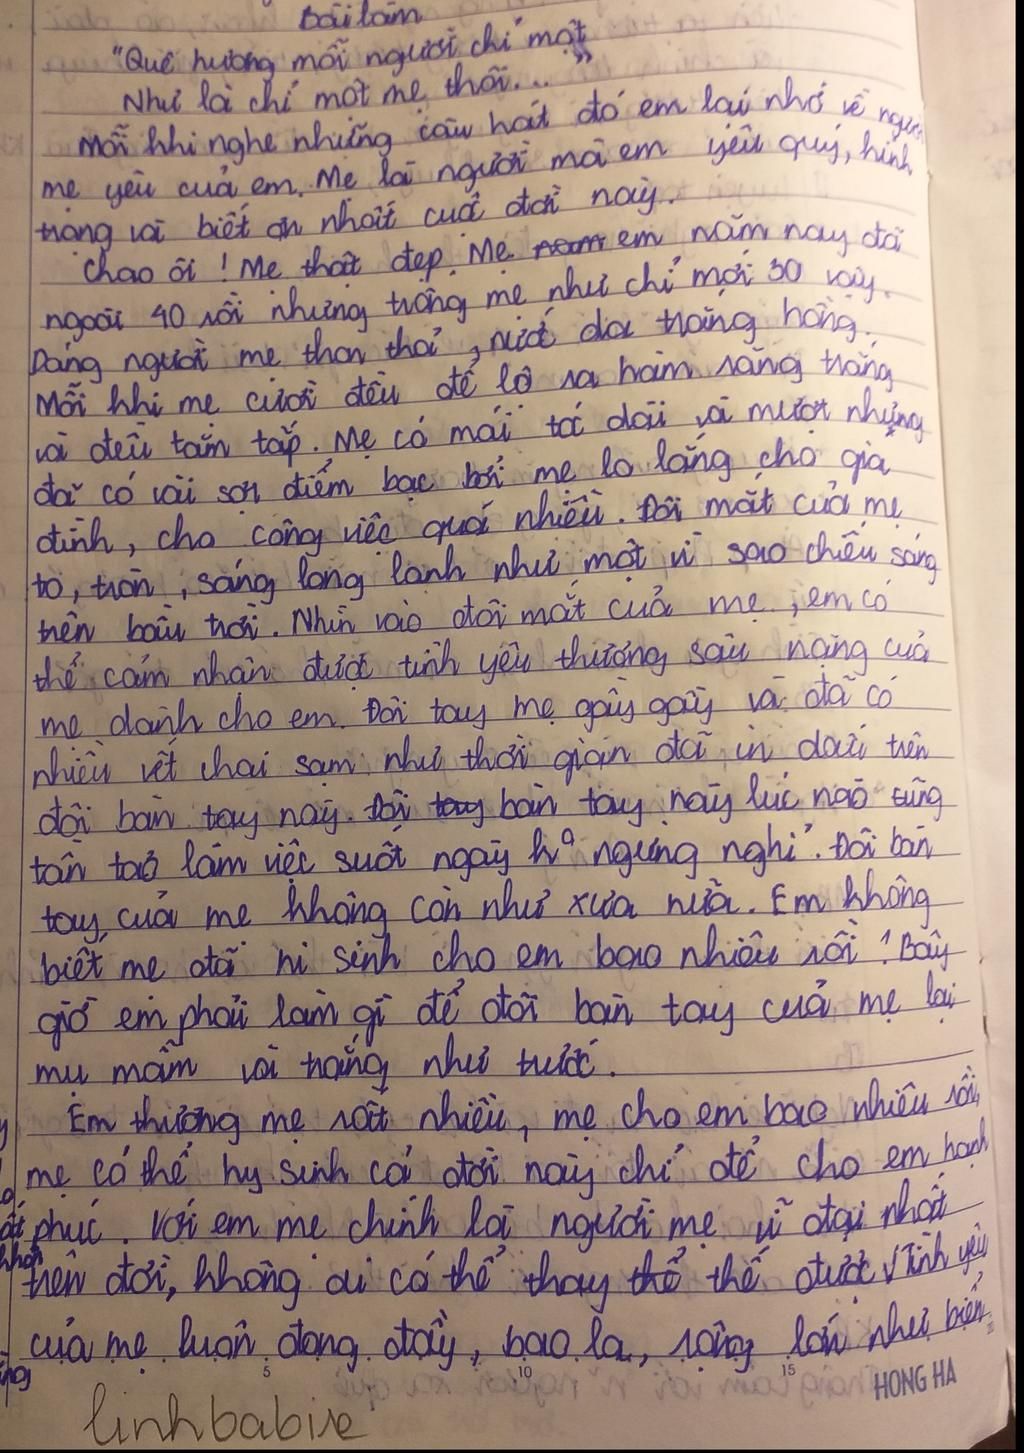 Bài làm
"Quê hương mỗi người chỉ một
Như là chỉ một mẹ thôi..."
Mỗi khi nghe những câu hát đó em lại nhớ về người
mẹ yêu của em. Mẹ là người mà em yêu quý, kính
trọng và biết ơn nhất cuộc đời này.
Chao ôi ! Mẹ thật đẹp. Mẹ năm em năm nay đã
ngoài 40 rồi nhưng trông mẹ như chỉ mới 30 vậy.
Dáng người mẹ thon thả, nước da trắng hồng.
Mỗi khi mẹ cười đều để lộ ra hàm răng trắng
và đều tăm tắp. Mẹ có mái tóc dài và mượt nhưng
đã có vài sợi điểm bạc bởi mẹ lo lắng cho gia
đình, cho công việc quá nhiều. Đôi mắt của mẹ
to, tròn, sáng long lanh như một vì sao chiếu sáng
trên bầu trời. Nhìn vào đôi mắt của mẹ, em có
thể cảm nhận được tình yêu thương sâu nặng của
mẹ dành cho em. Đôi tay mẹ gầy gầy và đã có
nhiều vết chai sạm như thời gian đã in dấu trên
đôi bàn tay này. Đôi tay bàn tay này lúc nào cũng
tần tảo làm việc suốt ngày ko ngưng nghỉ. Đôi bàn
tay của mẹ không còn như xưa nữa. Em không
biết mẹ đã hi sinh cho em bao nhiêu rồi ! Bây
giờ em phải làm gì để đôi bàn tay của mẹ lại
mụ mẫm và trắng như trước.
Em thương mẹ rất nhiều, mẹ cho em bao nhiêu rồi,
mẹ có thể hy sinh cả đời này chỉ để cho em hạnh
phúc. Với em mẹ chính là người mẹ vĩ đại nhất
trên đời, không ai có thể thay thể thế được. Tình yêu
của mẹ luôn đong đầy, bao la, rộng lớn như biển
5 10 15 HONG HA
linhbabie